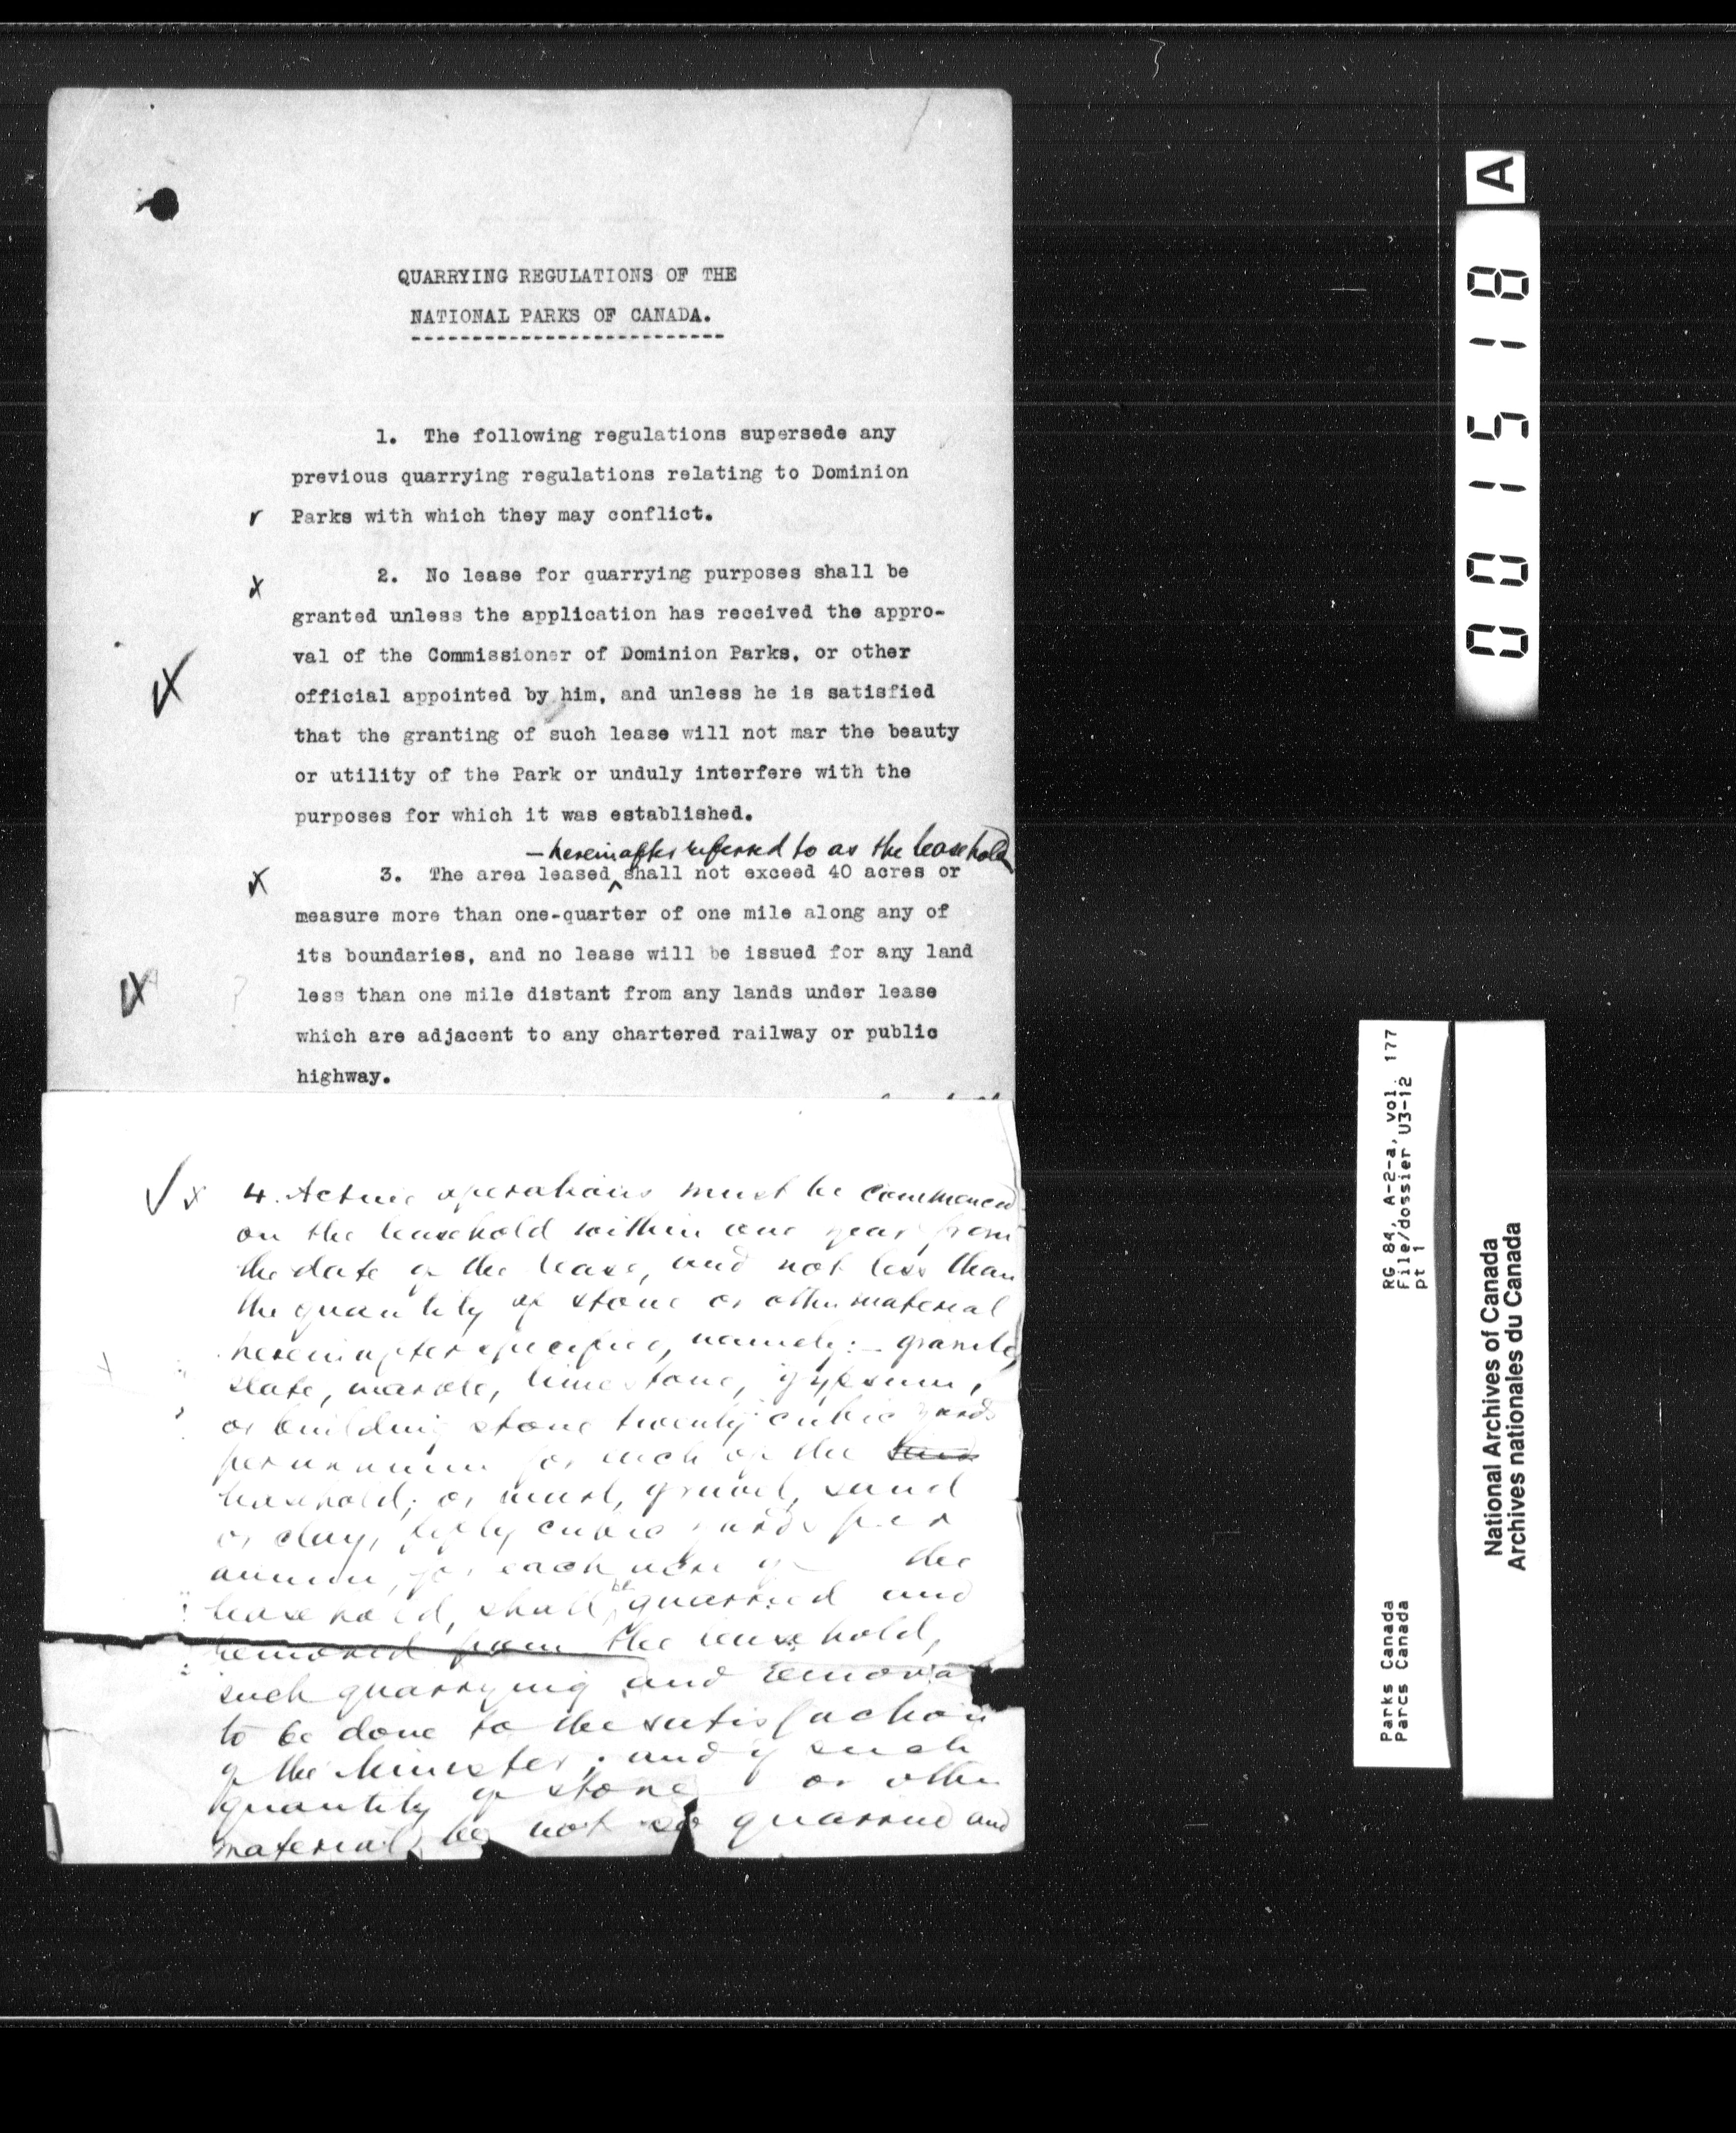 QUARRYING REGULATIONS OF THE
NATIONAL PARKS OF CANADA.
1. The following regulations supersede any
previous quarrying regulations relating to Dominion
Parks with which they may conflict.
2. No lease for quarrying purposes shall be
granted unless the application has received the appro-
val of the Commissioner of Dominion Parks, or other
official appointed by him, and unless he is satisfied
that the granting of such lease will not mar the beauty
or utility of the Park or unduly interfere with the
purposes for which it was established.
- hereinafter referred to as the leasehold
3. The area leased ^ shall not exceed 40 acres or
measure more than one-quarter of one mile along any of
its boundaries, and no lease will be issued for any land
less than one mile distant from any lands under lease
which are adjacent to any chartered railway or public
highway.
4. Active operations must be commenced
on the leasehold within one year from
the date of the lease, and not less than
the quantity of stone or other material
hereinafter specified, namely: - granite,
slate, marble, limestone, gypsum,
or building stone twenty cubic yards
per annum for each of the
leasehold; or marl, gravel, sand
or clay, fifty cubic yards per
annum, for each acre of the
leasehold, shall be quarried and
removed from the leasehold,
such quarrying and removal
to be done to the satisfaction
of the Minister; and if such
quantity of stone or other
material be not so quarried and
A
001518
RG 84, A-2-a, vol. 177
File/dossier U3-12
pt 1
Parks Canada
Parcs Canada
National Archives of Canada
Archives nationales du Canada